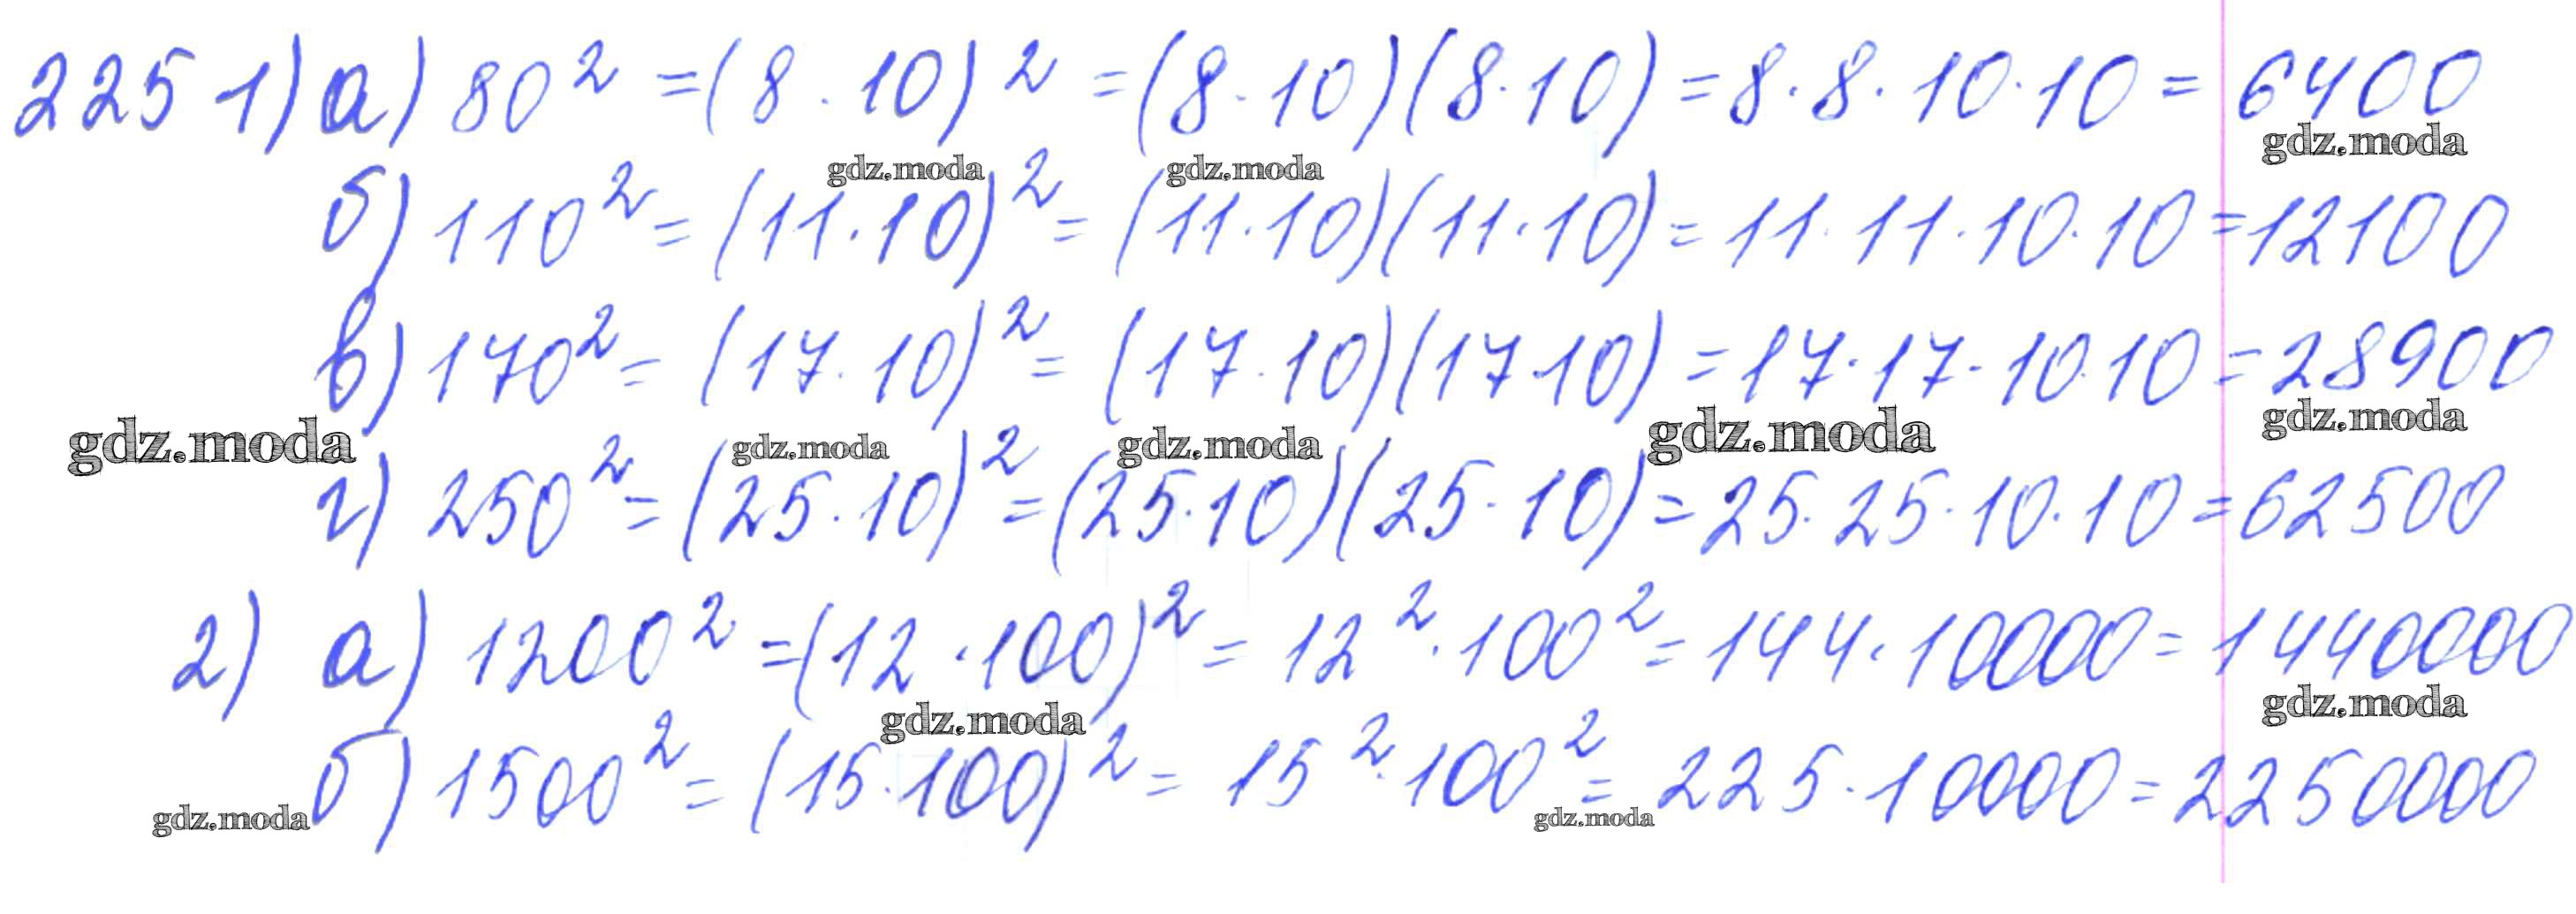 225 1) а) 80² = (8 · 10)² = (8 · 10)(8 · 10) = 8 · 8 · 10 · 10 = 6400
gdz.moda gdz.moda gdz.moda
б) 110² = (11 · 10)² = (11 · 10)(11 · 10) = 11 · 11 · 10 · 10 = 12100
в) 170² = (17 · 10)² = (17 · 10)(17 · 10) = 17 · 17 · 10 · 10 = 28900
gdz.moda gdz.moda gdz.moda gdz.moda gdz.moda
г) 250² = (25 · 10)² = (25 · 10)(25 · 10) = 25 · 25 · 10 · 10 = 62500
2) а) 1200² = (12 · 100)² = 12² · 100² = 144 · 10000 = 1440000
gdz.moda gdz.moda
б) 1500² = (15 · 100)² = 15² · 100² = 225 · 10000 = 2250000
gdz.moda gdz.moda